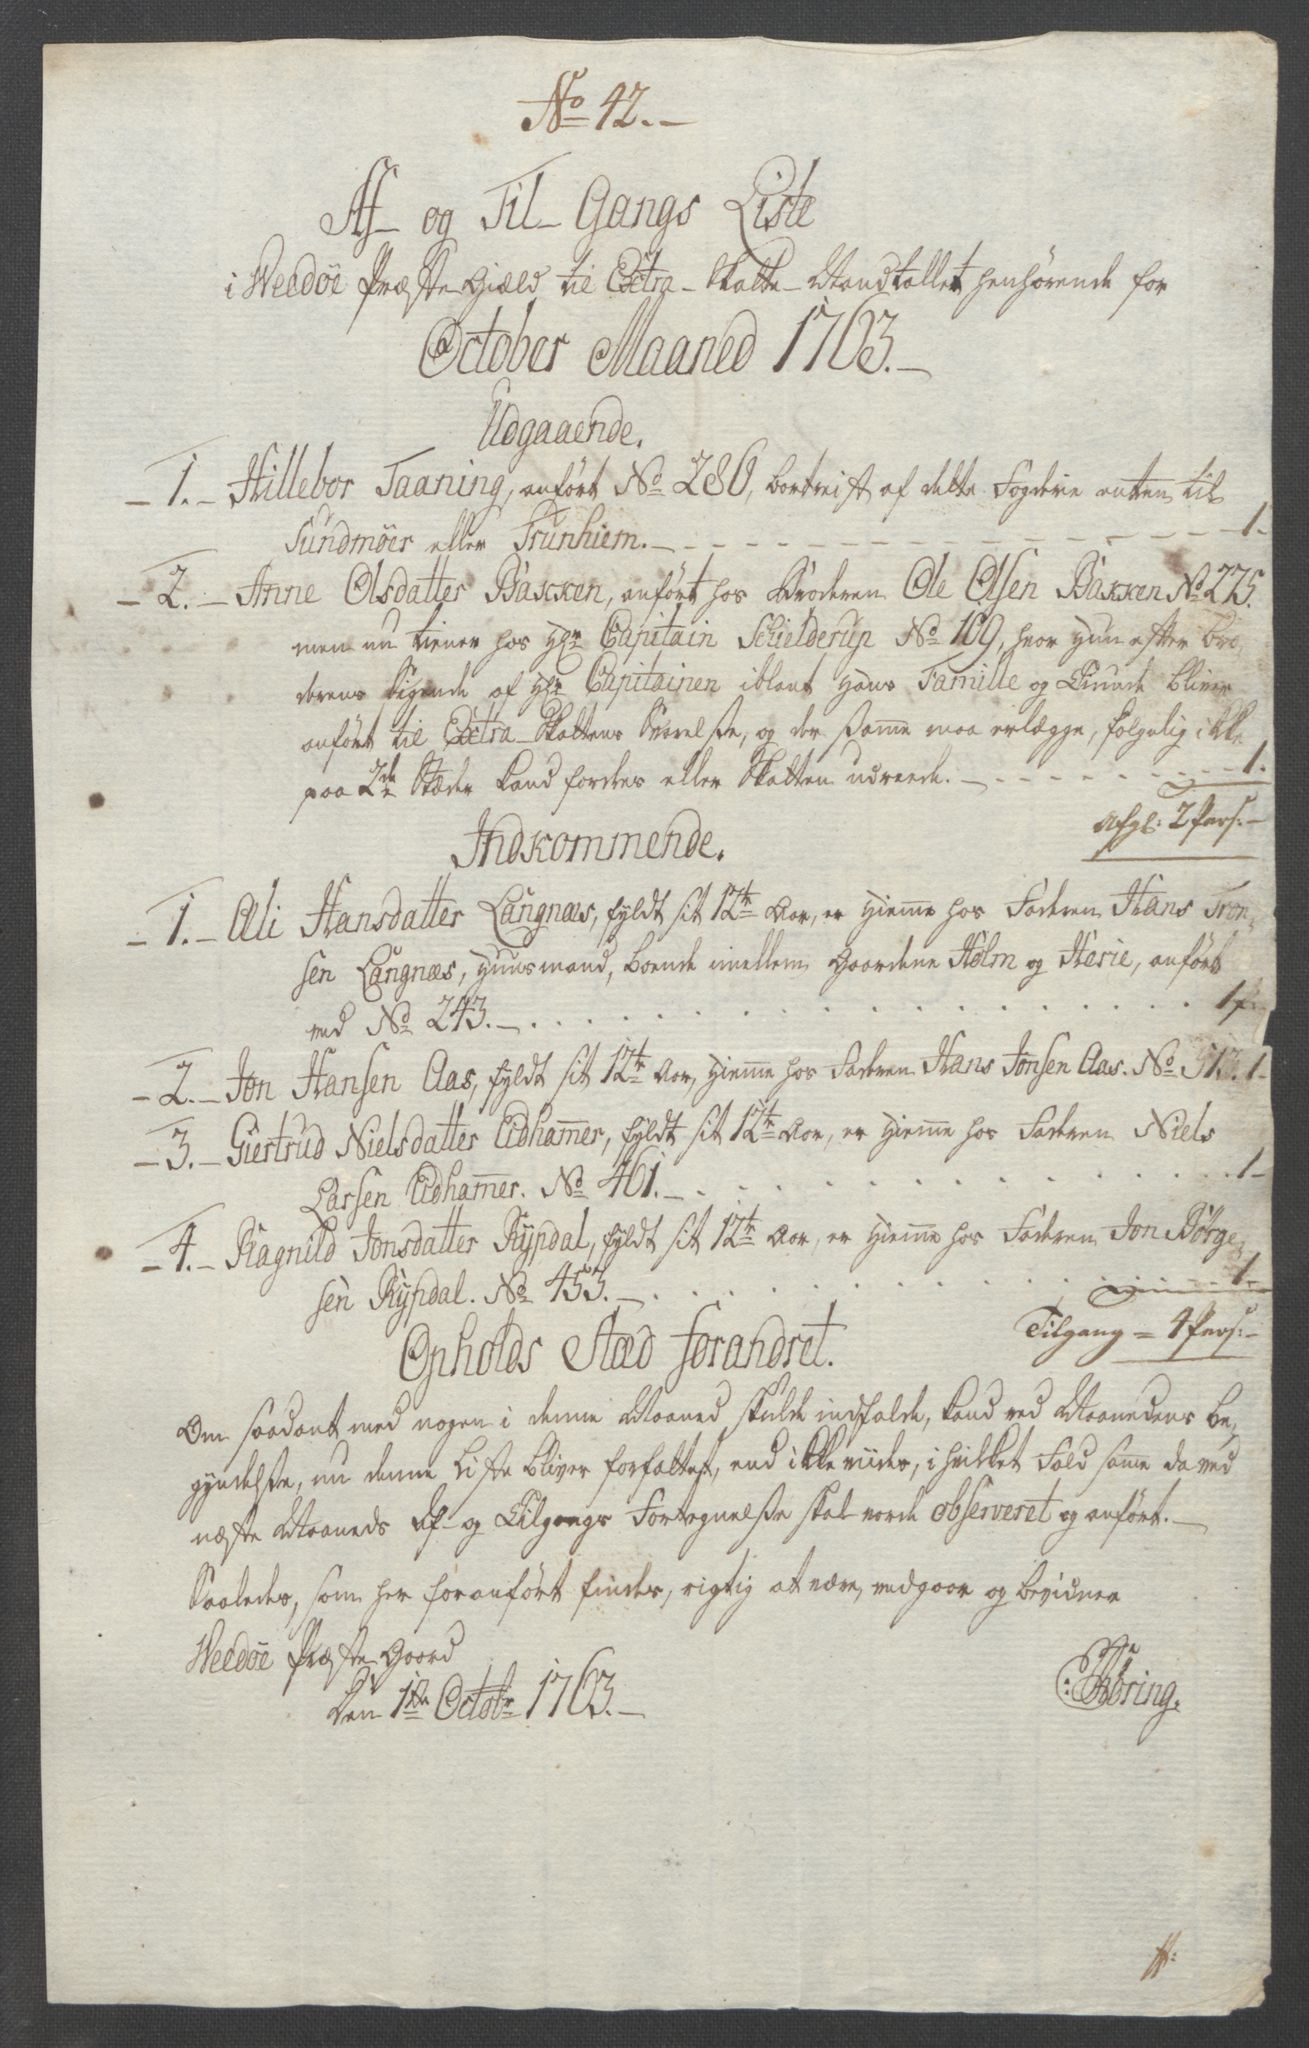 No 42.
Af- og Til-Gangs Liste
i Weedöe Præste Gield til Extra-Skatte-Mandtallet henhörende for
October Maaned 1763.
Udgaaende.
1. Hillebor Taaning, anfört No 280, bortreist af dette Fogderie enten til
Sundmöer eller Trunhiem. 1.
2. Anne Olsdatter Bakken, anfört hos Broderen Ole Olsen Bakken No 225.
men nu tiener hos Hr Capitain Schielderup No 109, hvor hun efter Bro-
derens Sigende af Hr Capitainen iblant hans Familie og Tiunde bliver
anfört til Extra-Skattens Svarelse, og der samme maa erlægge, fölgelig ikke
paa 2de Stæder kand fordres eller Skatten udreede. 1.
Afg: 2 Pers:
Indkommende.
1. Ali Hansdatter Langnæs, fyldt sit 12te Aar, er hiemme hos Faderen Hans Tron-
sen Langnæs, Huusmand, boende imellem Gaardene Holm og Herie, anfört
ved No 243. 1 p:
2. Jon Hansen Aas, fyldt sit 12te Aar, hiemme hos Faderen Hans Jonsen Aas. No 513. 1
3. Giertrud Nielsdatter Eidhammer, fyldt sit 12te Aar, er hiemme hos Faderen Niels
Larsen Eidhammer. No 461. 1
4. Ragnild Jonsdatter Rypdal, fyldt sit 12te Aar, er hiemme hos Faderen Jon Börge-
sen Rypdal. No 453. 1.
Tilgang = 4 Pers:
Opholds Stæd forandret.
Om saadant med nogen i denne Maaned skulde indfalde, kand ved Maanedens Be-
gyndelse, nu denne Liste bliver forfattet, end ikke viides, i hvilket Fald samme da ved
næste Maaneds Af- og Tilgangs Fortegnelse skal vorde observeret og anfört.
Saaledes, som her foranfört findes, rigtig at være, vedgaar og bevidner
Weedöe Præste Gaard
den 1ste Octobr 1763.
Röring.